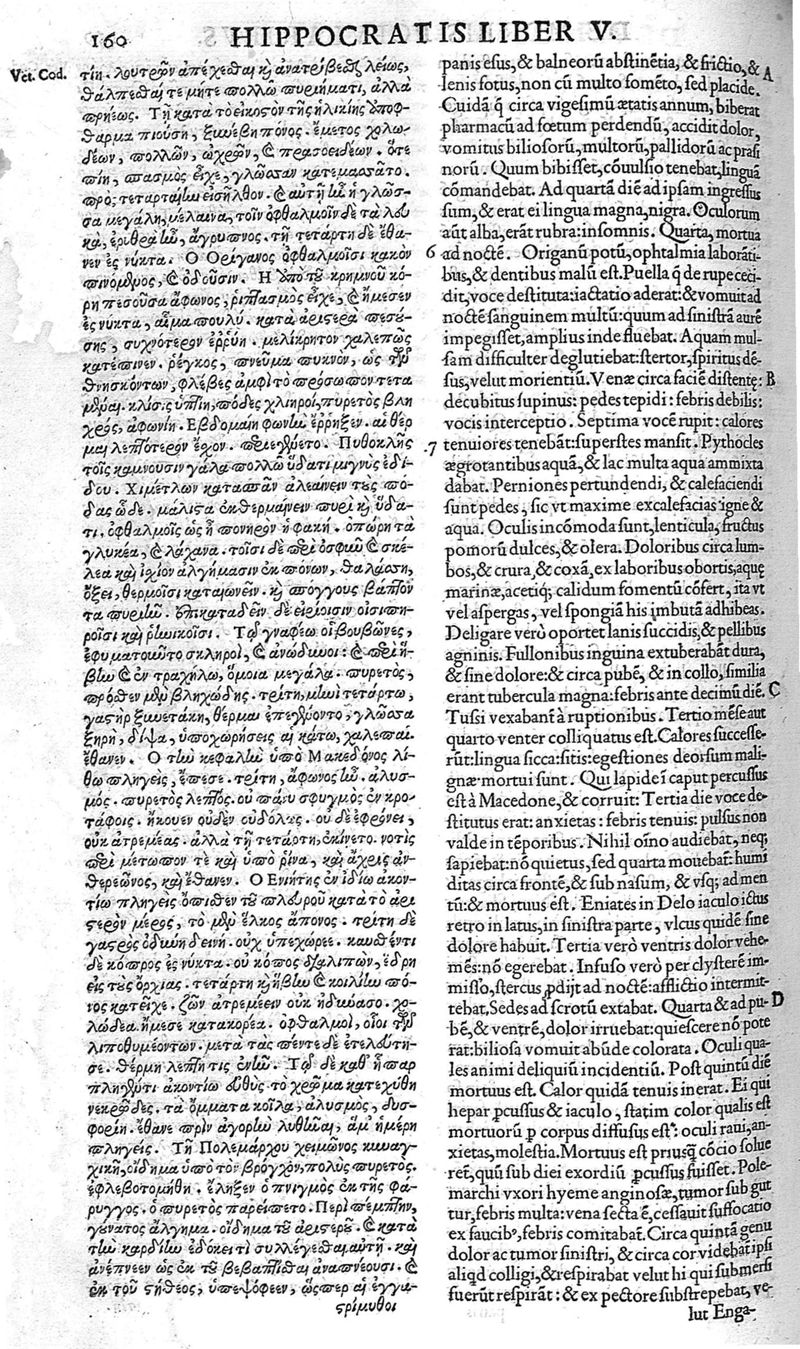 160 HIPPOCRATIS LIBER V.
Vet. Cod.
τίη. λουτρῶν ἀπέχεσθαι καὶ ἀνατρίβεσθαι λείως,
θάλπεσθαί τε μήτε πολλῷ πυριήματι, ἀλλὰ
πρηέως. Τῇ κατὰ τὸ εἰκοστὸν τῆς ἡλικίης ὑποφ-
θαρμα πιούσῃ, ξυνέβη πόνος. ἔμετος χολω-
δέων, πολλῶν, ὠχρῶν, καὶ πρασοειδέων. ὅτε
πίῃ, σπασμὸς εἶχε, γλῶσσαν κατεμασᾶτο.
πρὸς τεταρταίην εἰσῆλθον. καὶ αὐτῇ ἦν ἡ γλῶσ-
σα μεγάλη, μέλαινα, τοῖν ὀφθαλμοῖν δὲ τὰ λευ
κὰ, ἐρυθρὰ ἦν, ἄγρυπνος. τῇ τετάρτῃ δὲ ἔθα-
νεν ἐς νύκτα. Ὁ Ὀρίγανος ὀφθαλμοῖσι κακὸν
πινόμενος, καὶ ὀδοῦσιν. Ἡ ὑπὸ τοῦ κρημνοῦ κό-
ρη πεσοῦσα ἄφωνος, ῥιπτασμὸς εἶχε, καὶ ἤμεσεν
ἐς νύκτα, αἷμα πουλύ. κατὰ ἀριστερὰ πεσού-
σης, συχνότερον ἐρρύη. μελίκρητον χαλεπῶς
κατέπινεν. ῥέγκος, πνεῦμα πυκνὸν, ὡς τῶν
θνησκόντων, φλέβες ἀμφὶ τὸ πρόσωπον τετα
μέναι. κλίσις ὑπτίη, πόδες χλιηροὶ, πυρετὸς βλη
χρὸς, ἀφωνίη. Ἑβδομαίη φωνὴν ἔρρηξεν. αἱ θέρ
μαι λεπτότερον ἔσχον. περιεγένετο. Πυθοκλῆς
τοῖς κάμνουσιν γάλα πολλῷ ὕδατι μιγνὺς ἐδί-
δου. Χιμέτλων κατασπᾶν ἀλεαίνειν τοὺς πό-
δας ὧδε. μάλιστα ἐκθερμαίνειν πυρὶ καὶ ὕδα-
τι. ὀφθαλμοῖς ὡς ἡ πονηρὸν ἡ φακῆ. ὀπώρη τὰ
γλυκέα, καὶ λάχανα. τοῖσι δὲ περὶ ὀσφὺν καὶ σκέ-
λεα καὶ ἰσχίον ἀλγήμασιν ἐκ πόνων, θαλάσσῃ,
ὄξει, θερμοῖσι καταιωνεῖν. καὶ σπόγγους βάπτον
τα πυριῆν. ἐπικαταδεῖν δὲ εἰρίοισιν οἰσυπη-
ροῖσι καὶ ῥηνικοῖσι. Τῷ γναφέῳ οἱ βουβῶνες,
ἐφυματοῦντο σκληροὶ, καὶ ἀνώδυνοι: καὶ περὶ ἥ-
βην καὶ ἐν τραχήλῳ, ὅμοια μεγάλα. πυρετὸς,
πρόσθεν μὲν βληχώδης. τρίτῃ, μηνὶ τετάρτῳ,
γαστὴρ ξυνετάκη, θέρμαι ἐπεγένοντο, γλῶσσα
ξηρὴ, δίψα, ὑποχωρήσεις αἱ κάτω, χαλεπαί.
ἔθανεν. Ὁ τὴν κεφαλὴν ὑπὸ Μακεδόνος λί-
θῳ πληγεὶς, ἔπεσε. τρίτῃ, ἄφωνος ἦν. ἀλυσ-
μός. πυρετὸς λεπτὸς. οὐ πάνυ σφυγμὸς ἐν κρο-
τάφοις. ἤκουεν οὐδὲν οὐδόλως. οὐδὲ ἐφρόνει,
οὐκ ἀτρεμέας. ἀλλὰ τῇ τετάρτῃ, ἐκίνετο. νοτὶς
περὶ μέτωπόν τε καὶ ὑπὸ ῥῖνα, καὶ ἄχρις ἀν-
θερεῶνος, καὶ ἔθανεν. Ὁ Ἐνιήτης ἐν ἰδίῳ ἀκον-
τίῳ πληγεὶς ὄπισθεν τοῦ πλευροῦ κατὰ τὸ ἀρι
στερὸν μέρος, τὸ μὲν ἕλκος ἄπονος. τρίτῃ δὲ
γαστρὸς ὀδύνη δεινή. οὐχ ὑπεχώρεε. κλυσθέντι
δὲ κόπρος ἐς νύκτα. οὐ κόπος διαλιπὼν, ἕδρη
εἰς τοὺς ὄρχιας. τετάρτῃ καὶ ἥβην καὶ κοιλίην πό-
νος κατεῖχε. ζῶν ἀτρεμέειν οὐκ ἠδύνατο. χο-
λώδεα ἤμεσε κατακορέα. ὀφθαλμοὶ, οἷοι τῶν
λιποθυμεόντων. μετὰ τὰς πέντε δὲ ἐτελεύτη-
σε. θέρμη λεπτή τις ἐνῆν. Τῷ δὲ καθ' ἧπαρ
πληγέντι ἀκοντίῳ εὐθὺς τὸ χρῶμα κατεχύθη
νεκρῶδες. τὰ ὄμματα κοῖλα, ἀλυσμὸς, δυσ-
φορίη. ἔθανε πρὶν ἀγορὴν λυθῆναι, ἅμ' ἡμέρῃ
πληγείς. Τῇ Πολεμάρχου χειμῶνος κυναγ-
χικῇ, οἴδημα ὑπὸ τὸν βρόγχον, πολὺς πυρετός.
ἐφλεβοτομήθη. ἔληξεν ὁ πνιγμὸς ἐκ τῆς φά-
ρυγγος. ὁ πυρετὸς παρείπετο. Περὶ πέμπτην,
γούνατος ἄλγημα. οἴδημα τοῦ ἀριστεροῦ. καὶ κατὰ
τὴν καρδίην ἐδόκει τὶ συλλέγεσθαι αὐτῇ. καὶ
ἀνέπνεεν ὡς ἐκ τοῦ βεβαπτίσθαι ἀναπνέουσι. καὶ
ἐκ τοῦ στήθεος, ὑπεψόφεεν, ὥσπερ αἱ ἐγγα-
στρίμυθοι
panis esus, & balneorū abstinētia, & frictio, & A
lenis fotus, non cū multo fomēto, sed placide.
Cuidā q̄ circa vigesimū ætatis annum, biberat
pharmacū ad fœtum perdendū, accidit dolor,
vomitus biliosorū, multorū, pallidorū ac prasi
norū. Quum bibisset, cōuulsio tenebat, linguā
cōmandebat. Ad quartā diē ad ipsam ingressus
sum, & erat ei lingua magna, nigra. Oculorum
aūt alba, erāt rubra: insomnis. Quarta, mortua
6 ad noctē. Origanū potū, ophtalmia laborāti-
bus, & dentibus malū est. Puella q̄ de rupe ceci-
dit, voce destituta: iactatio aderat: & vomuit ad
noctē sanguinem multū: quum ad sinistrā aurē
impegisset, amplius inde fluebat. Aquam mul-
sam difficulter deglutiebat: stertor, spiritus dē-
sus, velut morientiū. Venæ circa faciē distentę: B
decubitus supinus: pedes tepidi: febris debilis:
vocis interceptio. Septima vocē rupit: calores
.7 tenuiores tenebāt: superstes mansit. Pythocles
ægrotantibus aquā, & lac multa aqua ammixta
dabat. Perniones pertundendi, & calefaciendi
sunt pedes, sic vt maxime excalefacias igne &
aqua. Oculis incōmoda sunt, lenticula, fructus
pomorū dulces, & olera. Doloribus circa lum-
bos, & crura, & coxā, ex laboribus obortis, aquę
marinæ, acetiq; calidum fomentū cōfert, ita vt
vel aspergas, vel spongiā his imbutā adhibeas.
Deligare verò oportet lanis succidis, & pellibus
agninis. Fullonibus inguina extuberabāt dura,
& sine dolore: & circa pubē, & in collo, similia
erant tubercula magna: febris ante decimū diē. C
Tussi vexabant à ruptionibus. Tertio mēse aut
quarto venter colliquatus est. Calores successe-
rūt: lingua sicca: sitis: egestiones deorsum mali-
gnæ. mortui sunt. Qui lapide ī caput percussus
est à Macedone, & corruit: Tertia die voce de-
stitutus erat: anxietas: febris tenuis: pulsus non
valde in tēporibus. Nihil oīno audiebat, neq;
sapiebat: nō quietus, sed quarta mouebat: humi
ditas circa frontē, & sub nasum, & vsq; ad men
tū: & mortuus est. Eniates in Delo iaculo ictus
retro in latus, in sinistra parte, vlcus quidē sine
dolore habuit. Tertia verò ventris dolor vehe-
mēs: nō egerebat. Infuso verò per clysterē im-
misso, stercus ꝓdijt ad noctē: afflictio intermit-
tebat. Sedes ad scrotū extabat. Quarta & ad pu- D
bē, & ventrē, dolor irruebat: quiescere nō pote
rat: biliosa vomuit abūde colorata. Oculi qua-
les animi deliquiū incidentiū. Post quintū diē
mortuus est. Calor quidā tenuis inerat. Ei qui
hepar ꝑcussus & iaculo, statim color qualis est
mortuorū ꝑ corpus diffusus est: oculi raui, an-
xietas, molestia. Mortuus est priusq̄ cōcio solue
ret, quū sub diei exordiū ꝑcussus fuisset. Pole-
marchi vxori hyeme anginosæ, tumor sub gut
tur, febris multa: vena secta ē, cessauit suffocatio
ex faucibꝰ, febris comitabat. Circa quintā genu
dolor ac tumor sinistri, & circa cor videbāt ipsi
aliqd colligi, & respirabat velut hi qui submersi
fuerūt respirāt: & ex pectore substrepebat, ve-
lut Enga-